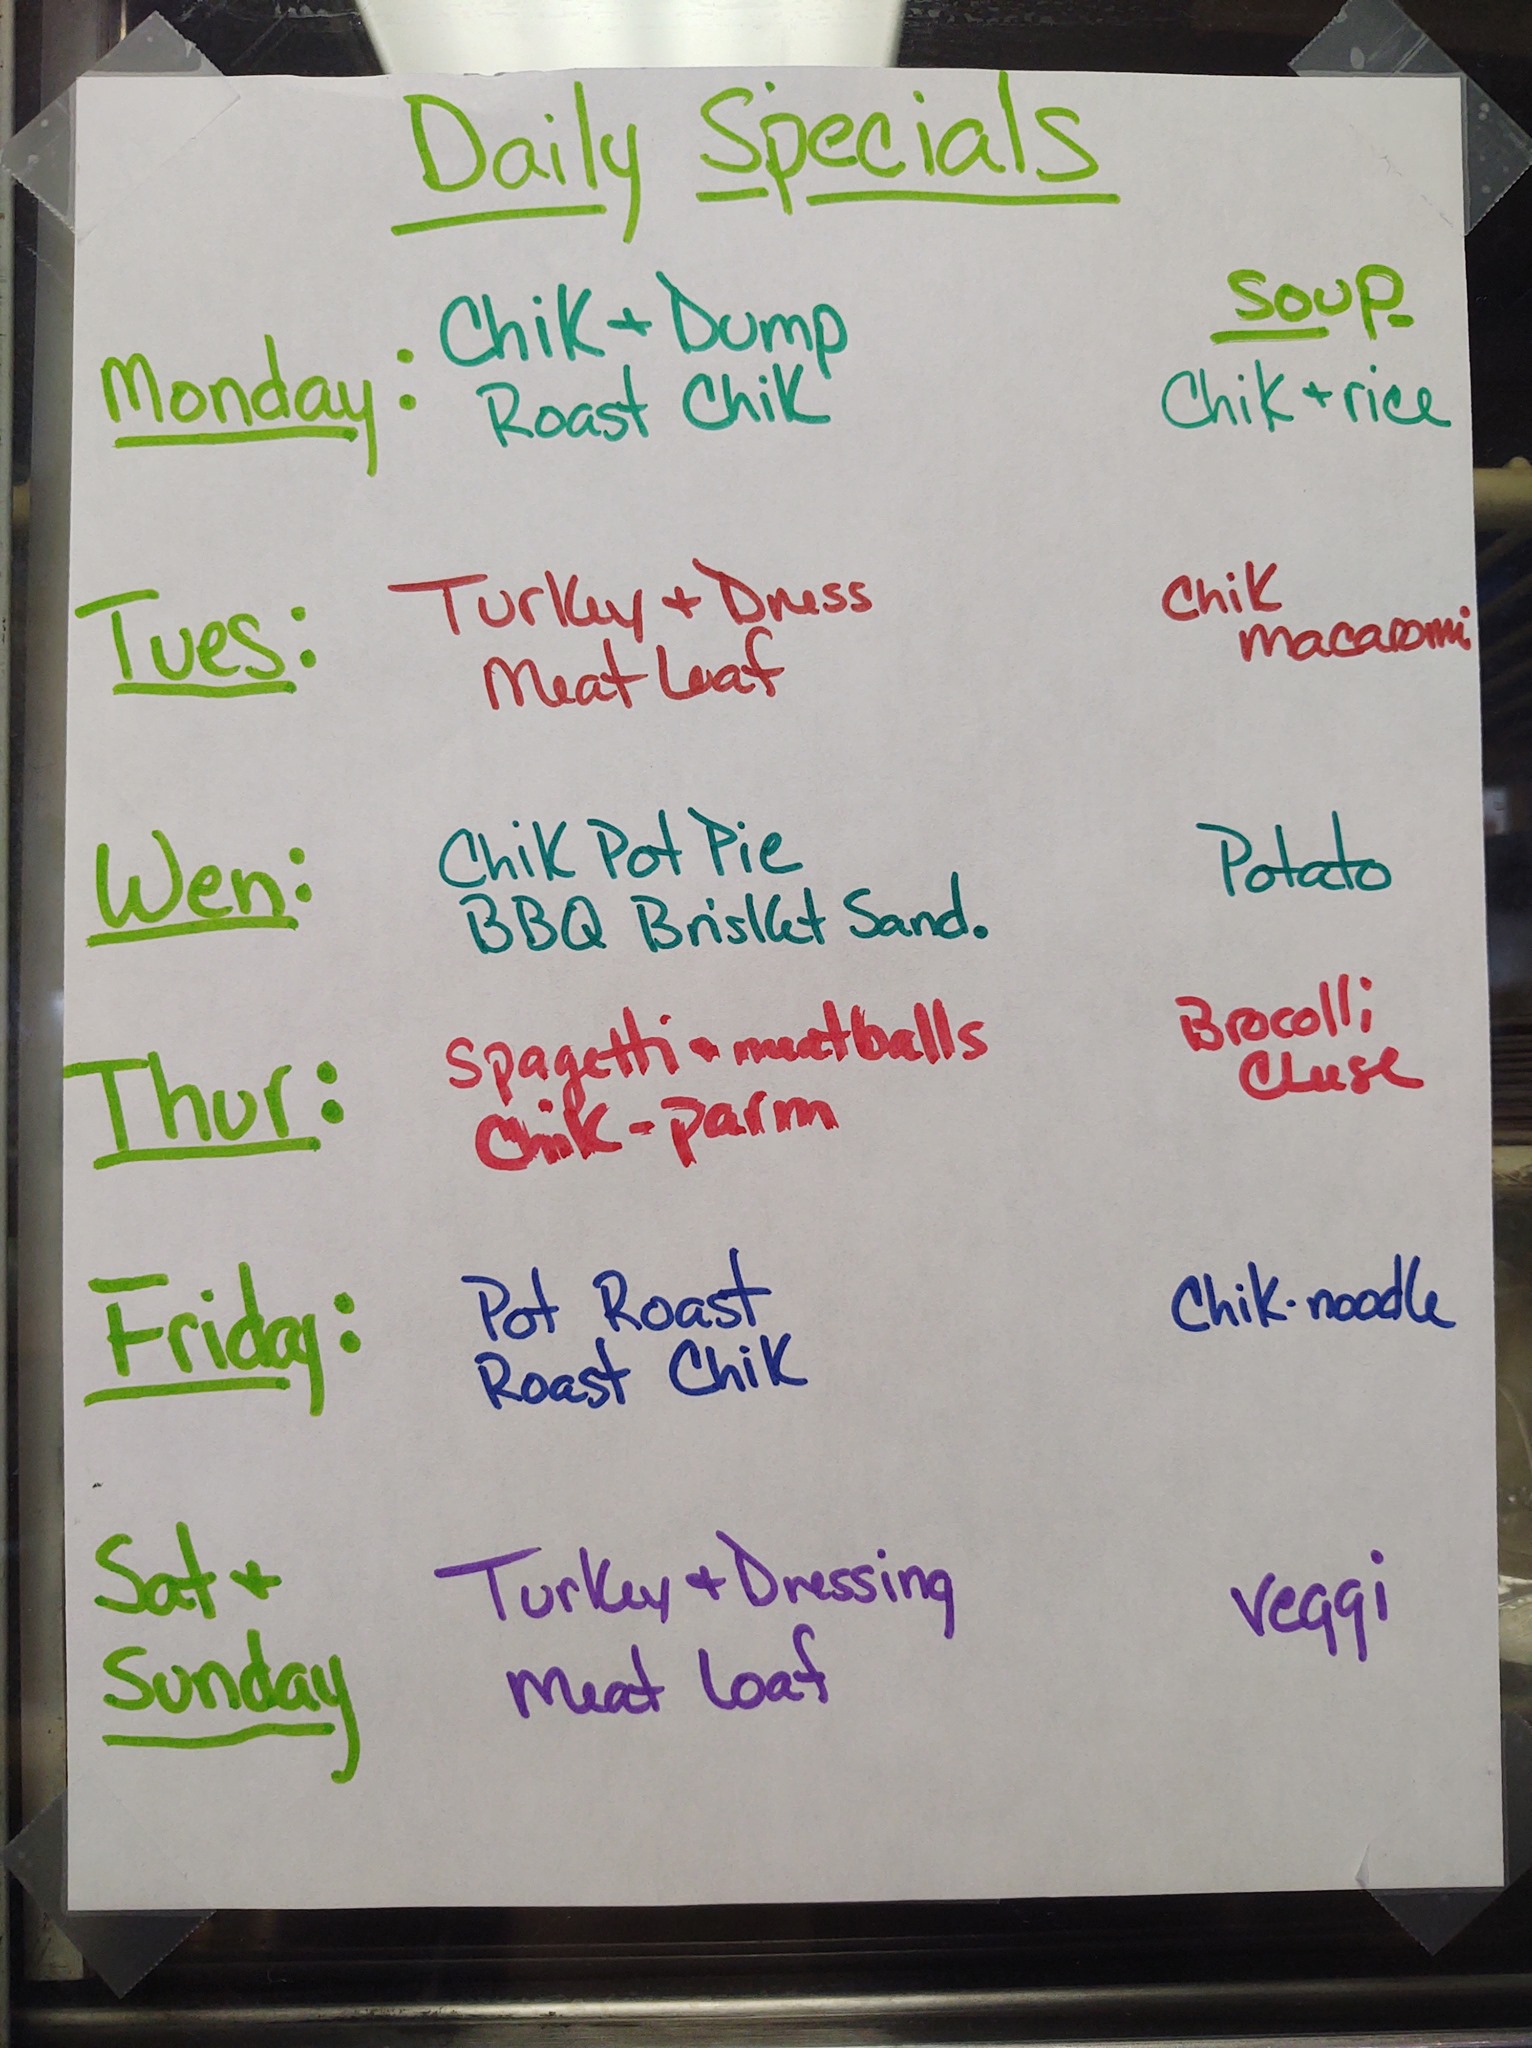 Daily Specials
Soup
Monday: Chik + Dump
Roast Chik
Chik + rice
Tues: Turkey + Dress
Meat Loaf
Chik
macaroni
Wen: Chik Pot Pie
BBQ Brisket Sand.
Potato
Thur: Spagetti + meatballs
Chik - parm
Brocolli
Cheese
Friday: Pot Roast
Roast Chik
Chik-noodle
Sat +
Sunday
Turkey + Dressing
Meat Loaf
Veggi